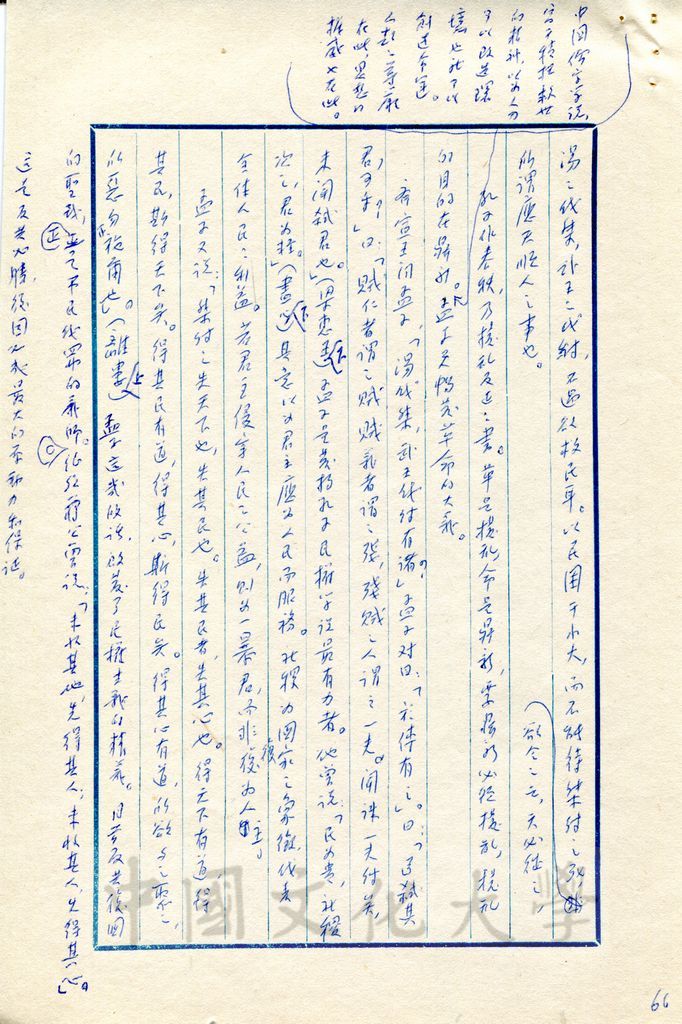 中國儒家學說,
富于積極救世
的精神,以為人力
可以改造環
境,也就可以
創造命運。
人類之尊嚴
在此,思想的
權威也在此。
湯之伐桀,武王之伐紂,不過欲救民耳。以民困于水火,而不能待桀紂之
所謂應天順人之事也。
欲令之亡,天必從之,
孔子作春秋,乃撥亂反正之書。革是撥亂,命是鼎新,要鼎新必經撥亂,撥亂
的目的在鼎新。孟子更暢發革命的大義。
齊宣王問孟子,「湯伐桀,武王伐紂有諸?」孟子對曰:「於傳有之。」曰:「臣弒其
君可乎?」曰:「賊仁者謂之賊,賊義者謂之殘,殘賊之人謂之一夫。聞誅一夫紂矣,
未聞弒君也。」(梁惠王下)孟子是發揚孔子民權學說最有力者。他曾說:「民為貴,社稷
次之,君為輕。」(盡心下)其意以為君主應為人民而服務。社稷為國家之象徵,代表
全体人民之利益。若君主侵害人民之公益,則為一暴君,而非復為人主。
孟子又說:「桀紂之失天下也,失其民也。失其民者,失其心也。得天下有道,得
其民,斯得天下矣。得其民有道,得其心,斯得民矣。得其心有道,所欲與之聚之,
所惡勿施爾也。」(離婁上)孟子這幾段話,啟發了民權主義的精義。目前反共復國
的聖戰,正是弔民伐罪的義師。 總裁蔣公曾說:「未收其地,先得其人;未收其人,先得其心。」
這是反共必勝,復國必成最大的原動力和保證。
中國文化大學
66